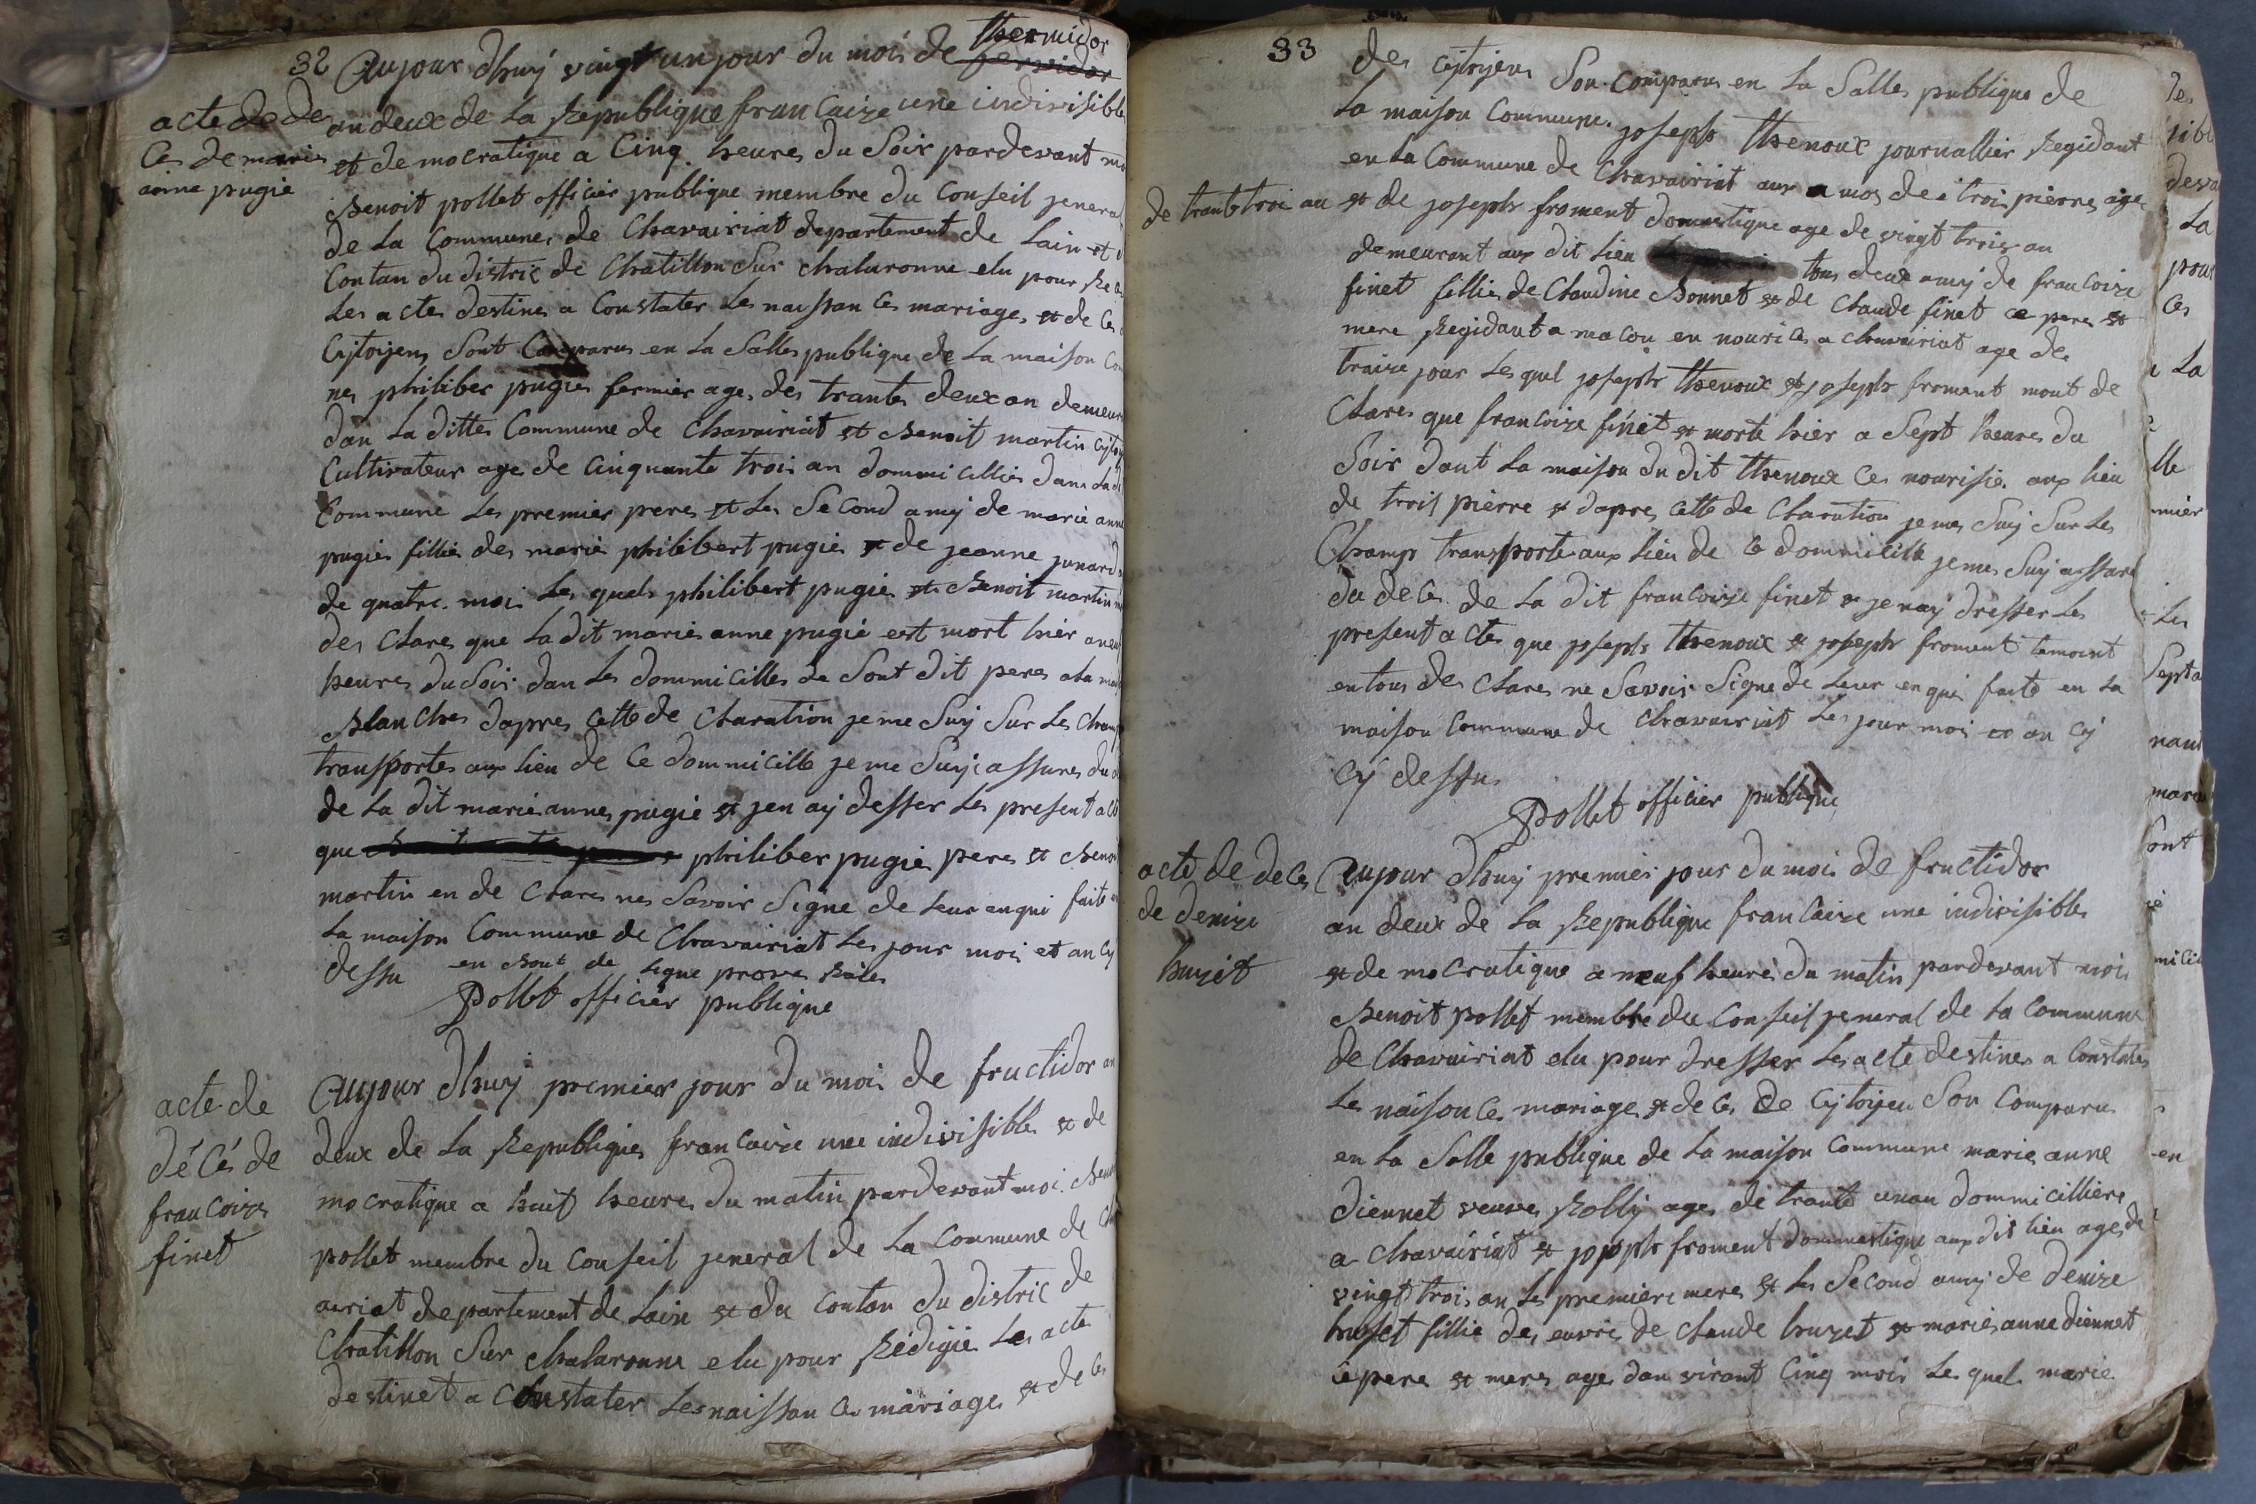 32
thermidor
Aujour dhuy vingt un jour du mois de fervidor
acte de de
ces de marie
anne pugie
an deux de La Republique francaize une indivisible
et de mocratique a Cinq heures du Soir pardevant
Benoit pollet officier publique membre du Conseil jeneral
de La Commune de Chavairiat departement de Lain et
Contan du distric de Chatillon Sur chalaronne elu pour
Les actes destines a Constater Les naissan Ces mariages et de Ces
Cytoyens Sont Comparus en La Salles publique de La maison
nes philiber pugies fermier ages des trantes deux an
dan La dittes Commune de Chavairiat et Benoit martin
Cultivateur age de Cinquante trois an dommicillies dans
Commune Les premier peres et Les Second amy de marie anne
pugies fillies des maries philibert pugies et de jeanne
de quatre moi Les quels philibert pugies et Benoit martin
des Clare que La dit maries anne pugie est mort hier
heures du Soir dan Les dommicilles de Sont dit peres a La
Blanches dapres Cette de Claration je me Suy Sur Les
transportes aux lieu de Ce dommicille je me Suyi assures du
de La dit marie annes pugie et jen ay desser Les present
que philiber pugie peres et
martin en de Clares nes Savoir Signe de Leur enqui faite
La maison Commune de Chavairiat Les jour moi et an Cy
dessu en de Ligne
Pollet officier publique
acte de
décés de
francoize
finet
Aujour dhuy premier jour du mois de fructidor
deux de La Republique francaize une indivisible et de
mocratique a huit heures du matin pardevant moi
pollet membre du Conseil jeneral de La Commune de
airiat departement de Lain et du Contan du distric de
Chatillon Sur chalaronne elu pour Redigie Les acte
destinet a Constater Les naissan Ces mariages et de Ces
33
des Cytoyens Son Comparus en La Salles publique de
La maison Commune joseph thenoux journallier Regidant
en La Commune de Chavairiat aux a mos de troi pierres age
de trante troi an et de joseph froment domestique age de vingt trois an
demeurant aux dit Lieu tous deux amy de francoize
finet fillies de Claudine Bonnet et de Claude finet ce pere et
mere Regidant a macon en nourice a chavairiat age de
traize jour Les quel joseph thenoux et joseph froment mont de
Clares que francoize finet et morte hier a Sept heures du
Soir dant La maison du dit thenoux Ces nourisie aux lieu
de trois pierre et dapres Cette de Claration je mes Suy Sur Les
Champ transporte aux Lieu de Ce dommicille je mes Suy assare
du de Ces de La dit francoize finet et je nay dresser Les
present actes que joseph thenoux et joseph froment temoint
en tous de Clares ne Savoir Signe de Leur en qui faite en La
maison Commune de Chavairiat Les jour moi et an Cy
Cy dessu
Pollet officier publique
acte de de Ces
de denize
huzet
Aujour dhuy premier jour du mois de fructidor
an deux de La Republique francaize une indivisibles
et de mocratique a neuf heure du matin pardevant moi
Benoit pollet membre du Conseil jeneral de La Commune
de Chavairiat elu pour dresser Les acte destines a Constates
Les naison Ces mariages et de Ces de Cytoyen Son Comparu
en La Salle publique de La maison Commune marie anne
diennet veuves Rolly ages de trante un an dommicilliere
a Chavairiat et joseph froment dommestique aux dit lieu ages de
vingt trois an Les premiere mere et Les Second amy de denize
huset fillie des euvrie de Claude huzet et maries anne diennet
Ce pere et meres ages dan viront Cinq mois Les quel marie